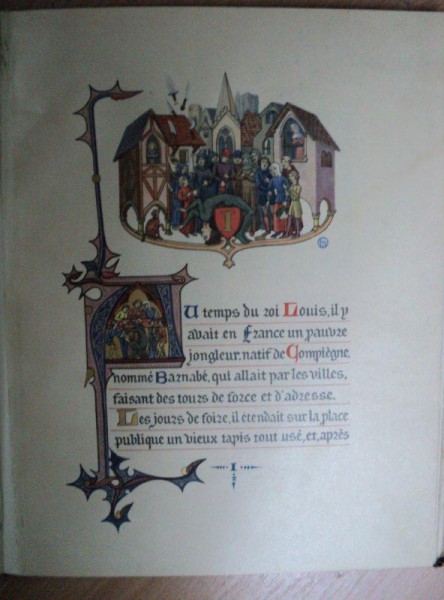 I
Au temps du roi Louis, il y
avait en France un pauvre
jongleur, natif de Compiègne,
nommé Barnabé, qui allait par les villes,
faisant des tours de force et d'adresse.
Les jours de foire, il étendait sur la place
publique un vieux tapis tout usé, et, après
I